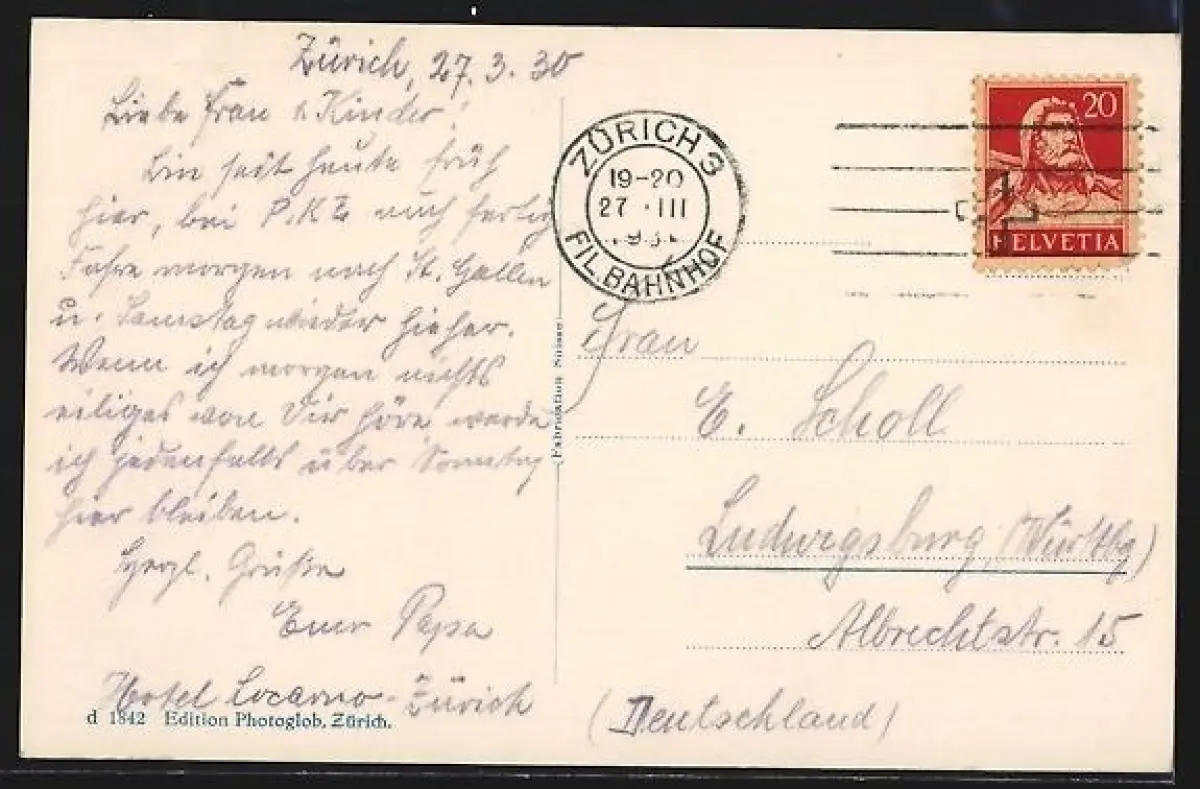 Zürich, 27.3.30
Liebe Frau u. Kinder!
Bin seit heute früh
hier, bei P.K.Z. auch fertig
Fahre morgen nach St. Gallen
u. Samstag wieder hieher.
Wenn ich morgen nichts
eiliges von Dir höre werde
ich jedenfalls über Sonntag
hier bleiben.
Herzl. Grüße
Euer Papa
Hotel Locarno-Zürich
d 1842 Edition Photoglob, Zürich.
Fabrication Suisse
ZÜRICH 3
19-20
27 III
FIL. BAHNHOF
20
HELVETIA
Frau
E. Scholl
Ludwigsburg, (Württbg)
Albrechtstr. 15
(Deutschland)